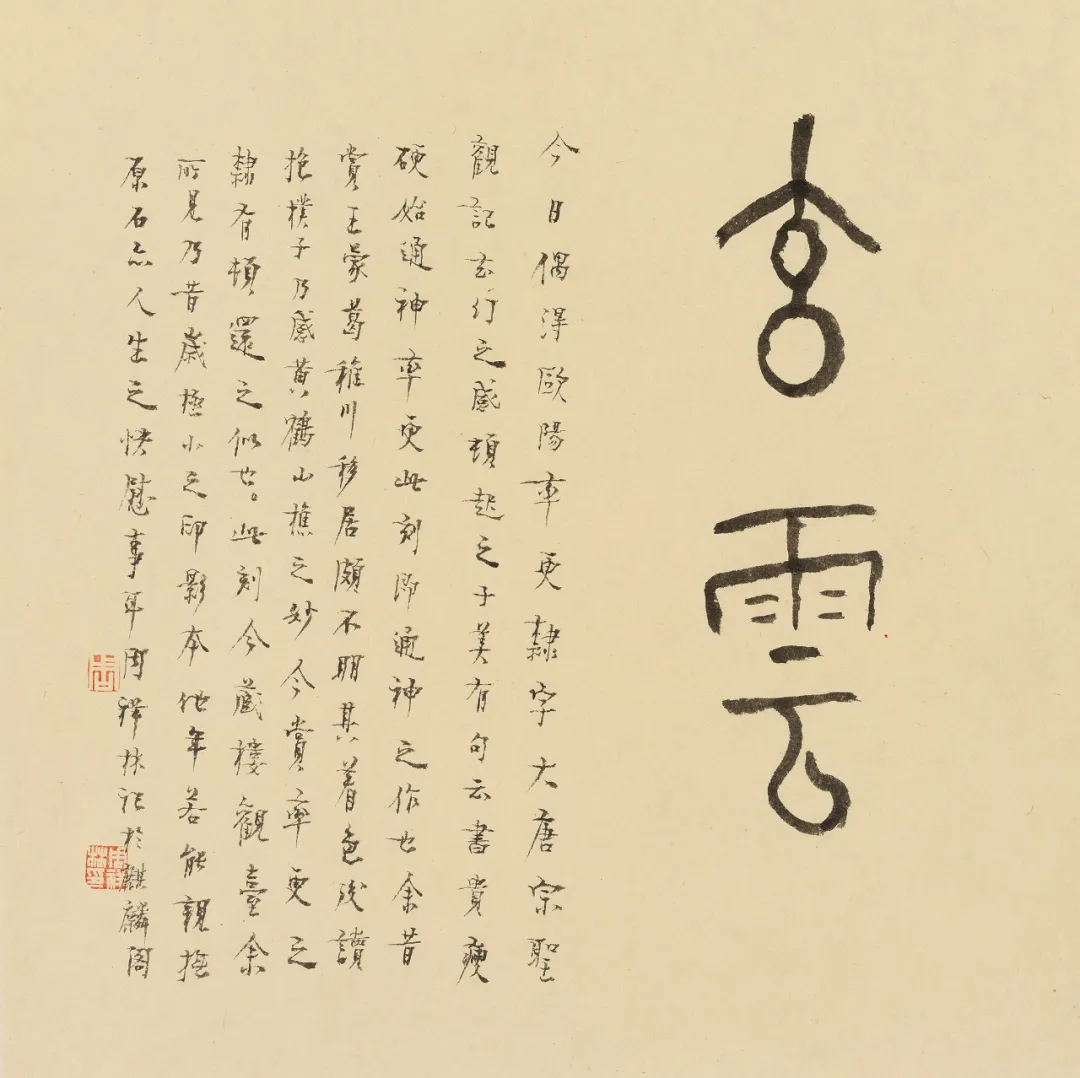 玄雲
今日偶得歐陽率更隸字大唐宗聖
觀記玄行之感頓起之子美有句云書貴瘦
硬始通神率更此刻即通神之作也余昔
賞王蒙葛稚川移居頗不明其着色後讀
抱樸子乃感黃鶴山樵之妙今賞率更之
隸有頓還之似也。此刻今藏樓觀臺余
所見乃昔歲極小之印影本他年若能親撫
原石亦人生之快慰事耳周祥林記於麒麟閣
周